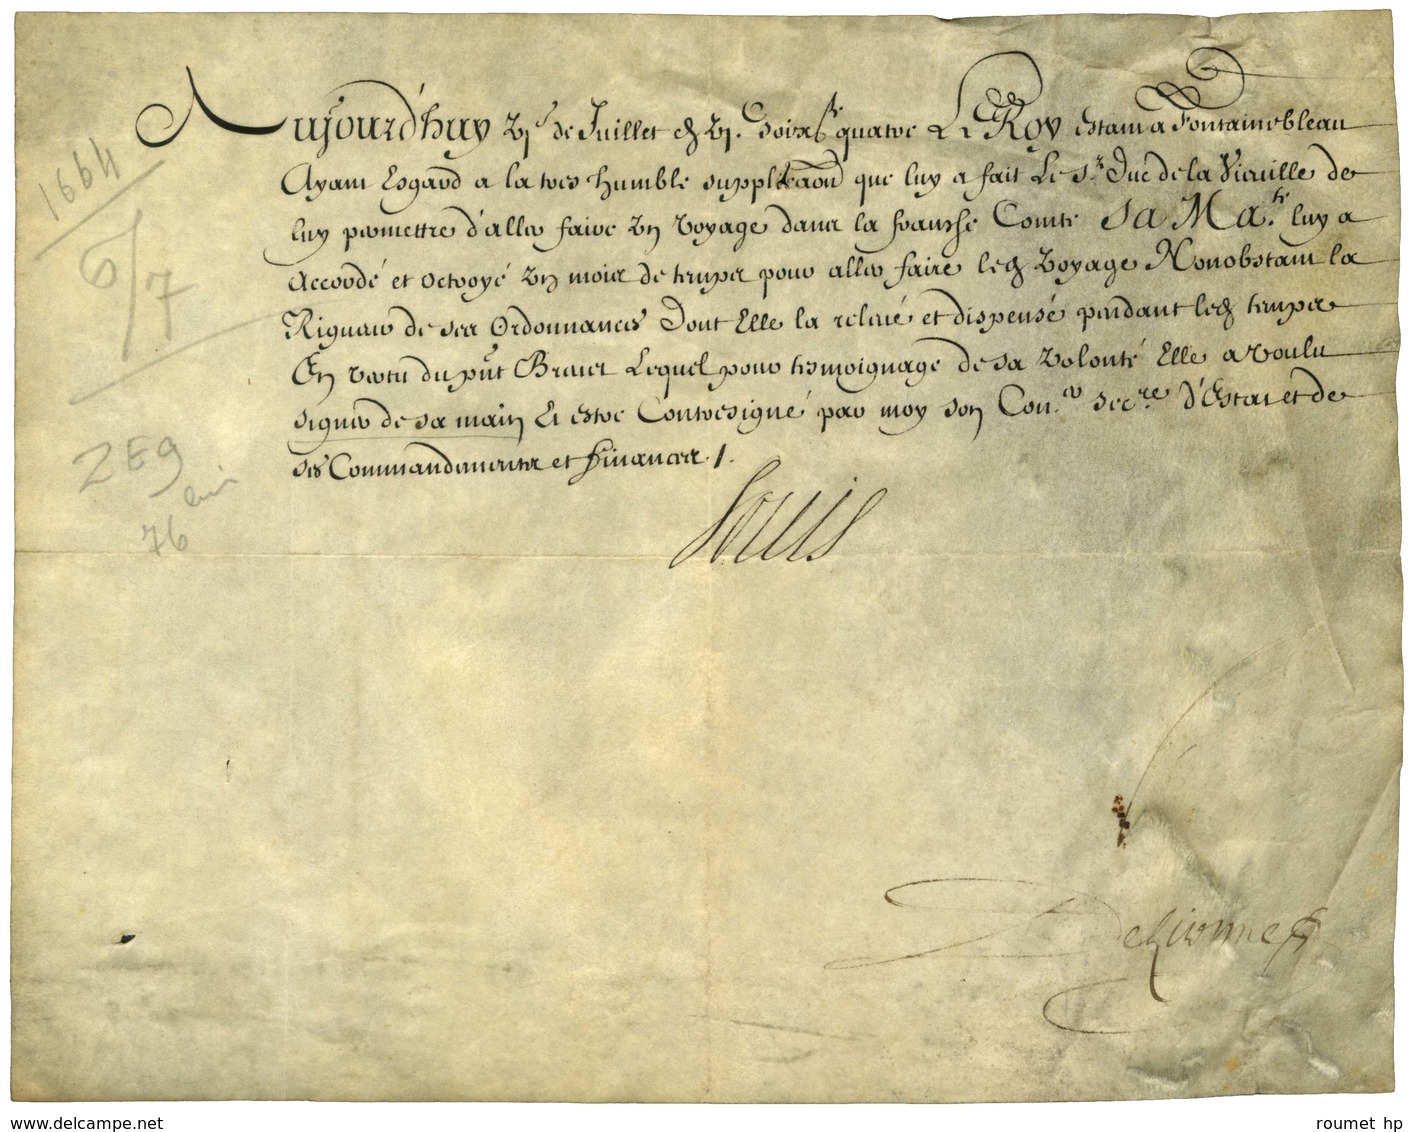 Aujourd'huy VJe de Juillet gbc Soixte quatre Le Roy estant a Fontainebleau
Ayant Esgard a la tres humble supplicaon que luy a fait Le Sr. Duc de la Vieuille de
luy permettre d'aller faire Un Voyage dans la franche Comté Sa Mate. luy a
Accordé et octroyé Un mois de temps pour aller faire led Voyage Nonobstant la
Rigueur de ses Ordonnances Dont Elle la releué et dispensé pendant led temps
En vertu du pnt Breuet Lequel pour tesmoignage de sa Volonté Elle a voulu
signer de sa main Et estre Contresigné par moy son Conr. Secre. d'Estat et de
ses Commandements et finances ./.
Louis
DeLionne
1664
6/7
2E9
76
www.delcampe.net
roumet hp